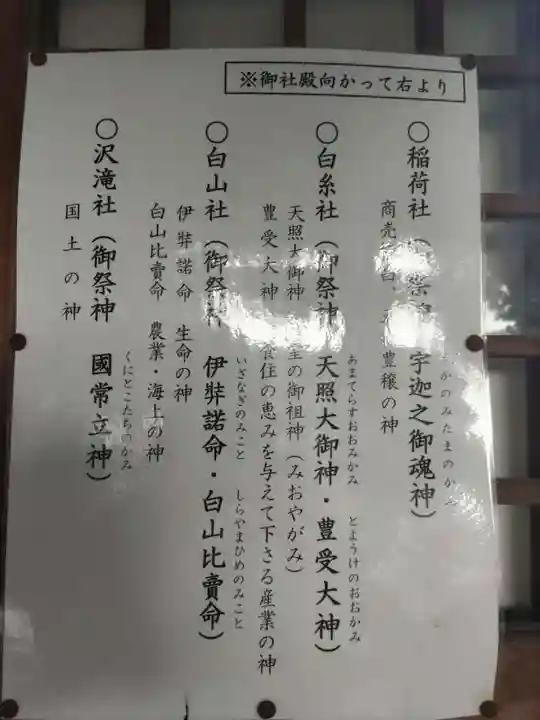 ※御社殿向かって右より
〇稲荷社(祭神 宇迦之御魂神)
かのみたまのかみ
商売 五 豊穣の神
〇白糸社(御祭神 天照大御神・豊受大神)
あまてらすおおみかみ とようけのおおかみ
天照大御神 室の御祖神(みおやがみ)
豊受大神 食住の恵みを与えて下さる産業の神
〇白山社(御祭神 伊弉諾命・白山比賣命)
いざなぎのみこと しらやまひめのみこと
伊弉諾命 生命の神
白山比賣命 農業・海上の神
〇沢滝社(御祭神 國常立神)
くにとこたちのかみ
国土の神